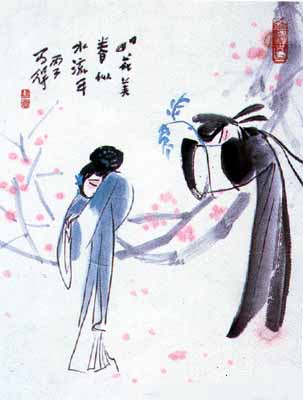 如花美
眷似
水流年
丙子
马得